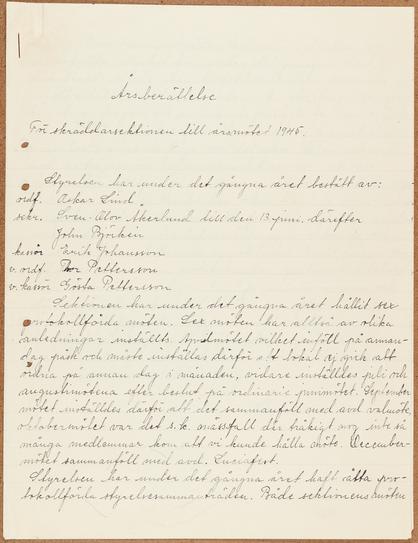 Årsberättelse
För skräddarsektionen till årsmötet 1945.
Styrelsen har under det gångna året bestått av:
ordf. Oskar Lind
sekr. Sven-Olov Åkerlund till den 13 juni. därefter
John Björkén
kassör Erik Johansson
v. ordf. Thor Pettersson
v. kassör Gösta Pettersson
Sektionen har under det gångna året hållit sex
protokollförda möten. Sex möten har alltså av olika
anledningar inställts. Aprilmötet vilket inföll på annan-
dag påsk och måste inställas därför att lokal ej gick att
ordna på annan dag i månaden, vidare inställdes juli och
augustimötena efter beslut på ordinarie junimötet. September
mötet inställdes därför att det sammanföll med avd valmöte,
oktobermötet var det s.k. massfall där tråkigt nog inte så
många medlemmar kom att vi kunde hålla möte. December-
mötet sammanföll med avd. Luciafest.
Styrelsen har under det gångna året haft åtta pro-
tokollförda styrelsesammanträden. Både sektionens möten